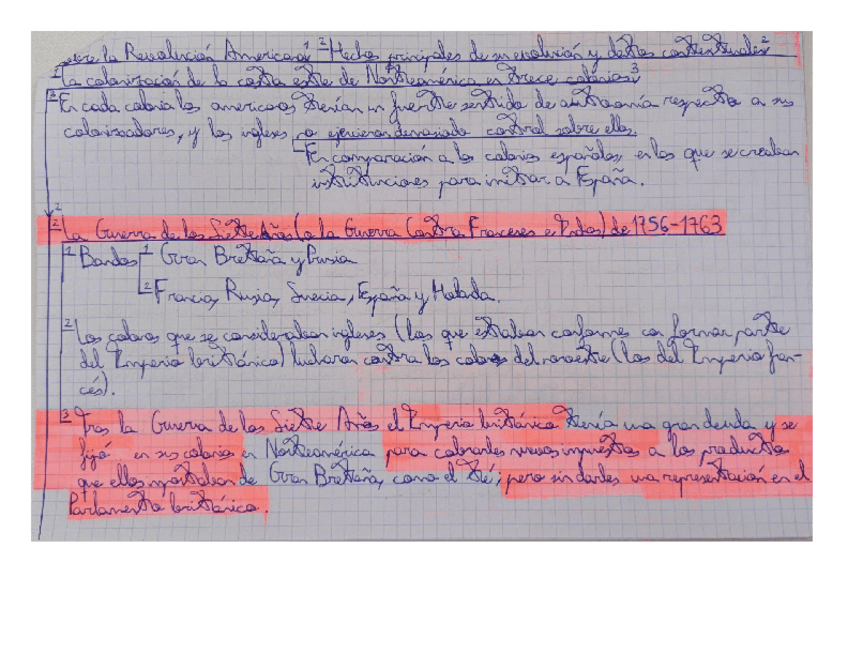 sobre la Revolución Americana ¹ ²Hechos principales de su evolución y datos contextuales²
¹La colonización de la costa este de Norteamérica en trece colonias³
³En cada colonia los americanos tenían un fuerte sentido de autonomía respecto a sus
colonizadores, y los ingleses no ejercieron demasiado control sobre ellos.
En comparación a las colonias españolas, en las que se creaban
instituciones para imitar a España.
²La Guerra de los Siete Años (o la Guerra Contra Franceses e Indios) de 1756-1763
¹Bandos ¹ Gran Bretaña y Prusia
² Francia, Rusia, Suecia, España y Holanda.
²Los colonos que se consideraban ingleses (los que estaban conformes con formar parte
del Imperio británico) lucharon contra los colonos del noroeste (los del Imperio fran-
cés).
³Tras la Guerra de los Siete Años el Imperio británico tenía una gran deuda y se
fijó en sus colonias en Norteamérica para cobrarles nuevos impuestos a los productos
que ellos importaban de Gran Bretaña, como el té; pero sin darles una representación en el
Parlamento británico.